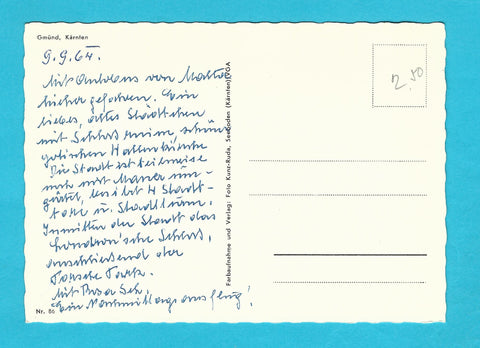 Gmünd, Kärnten
9.9.64.
Mit Autobus von Malta
hierher gefahren. Ein
liebes, altes Städtchen
mit Schlossruine, schöne
gotischen Hallenkirche
Die Stadt ist teilweise
noch mit Mauer um-
gürtet, besitzt 4 Stadt-
tore u. Stadttürme.
Inmitten der Stadt das
Londron'sche Schloss,
anschliessend der
Porsche Park.
Mit Rosa Sch.
Ein Nachmittagsausflug!
Nr. 86
Farbaufnahme und Verlag: Foto Kunz-Ruda, Seeboden (Kärnten)
2.50